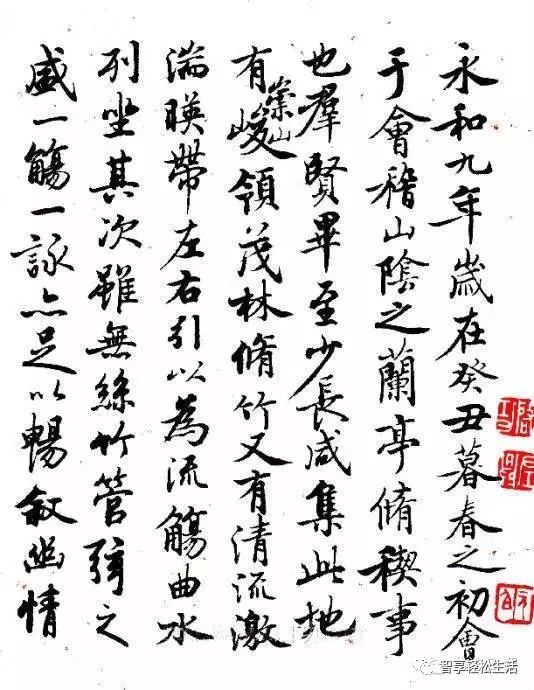 永和九年歲在癸丑暮春之初會
于會稽山陰之蘭亭脩稧事
也羣賢畢至少長咸集此地
有崇山峻領茂林脩竹又有清流激
湍暎帶左右引以為流觴曲水
列坐其次雖無絲竹管弦之
盛一觴一詠亦足以暢敘幽情
智享轻松生活